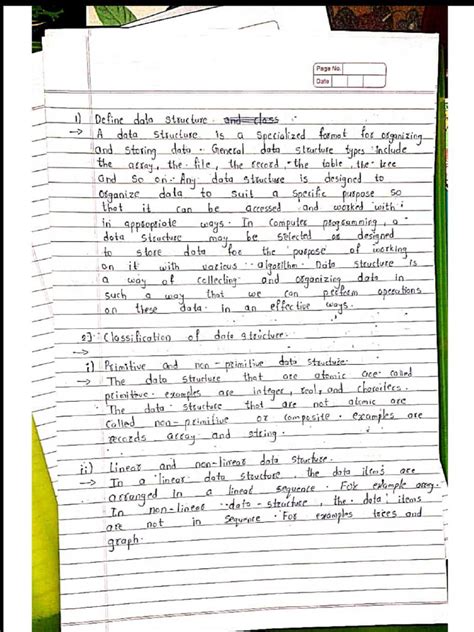 Page No.
Date
1) Define data structure and class :
→ A data structure is a specialized format for organizing
and storing data. General data structure types include
the array, the file, the record, the table, the tree
and so on. Any data structure is designed to
organize data to suit a specific purpose so
that it can be accessed and worked with
in appropriate ways. In computer programming, a
data structure may be selected or designed
to store data for the purpose of working
on it with various algorithm. Data structure is
a way of collecting and organizing data in
such a way that we can perform operations
on these data in an effective ways.
2) Classification of data structure.
→
i) Primitive and non-primitive data structure.
→ The data structure that are atomic are called
primitive. examples are integer, real, and charaters.
The data structure that are not atomic are
called non-primitive or composite. examples are
records array and string.
ii) Linear and non-linear data structure.
→ In a linear data structure, the data items are
arranged in a linear sequence. For example array.
In non-linear data-structure, the data items
are not in sequence. For examples trees and
graph.